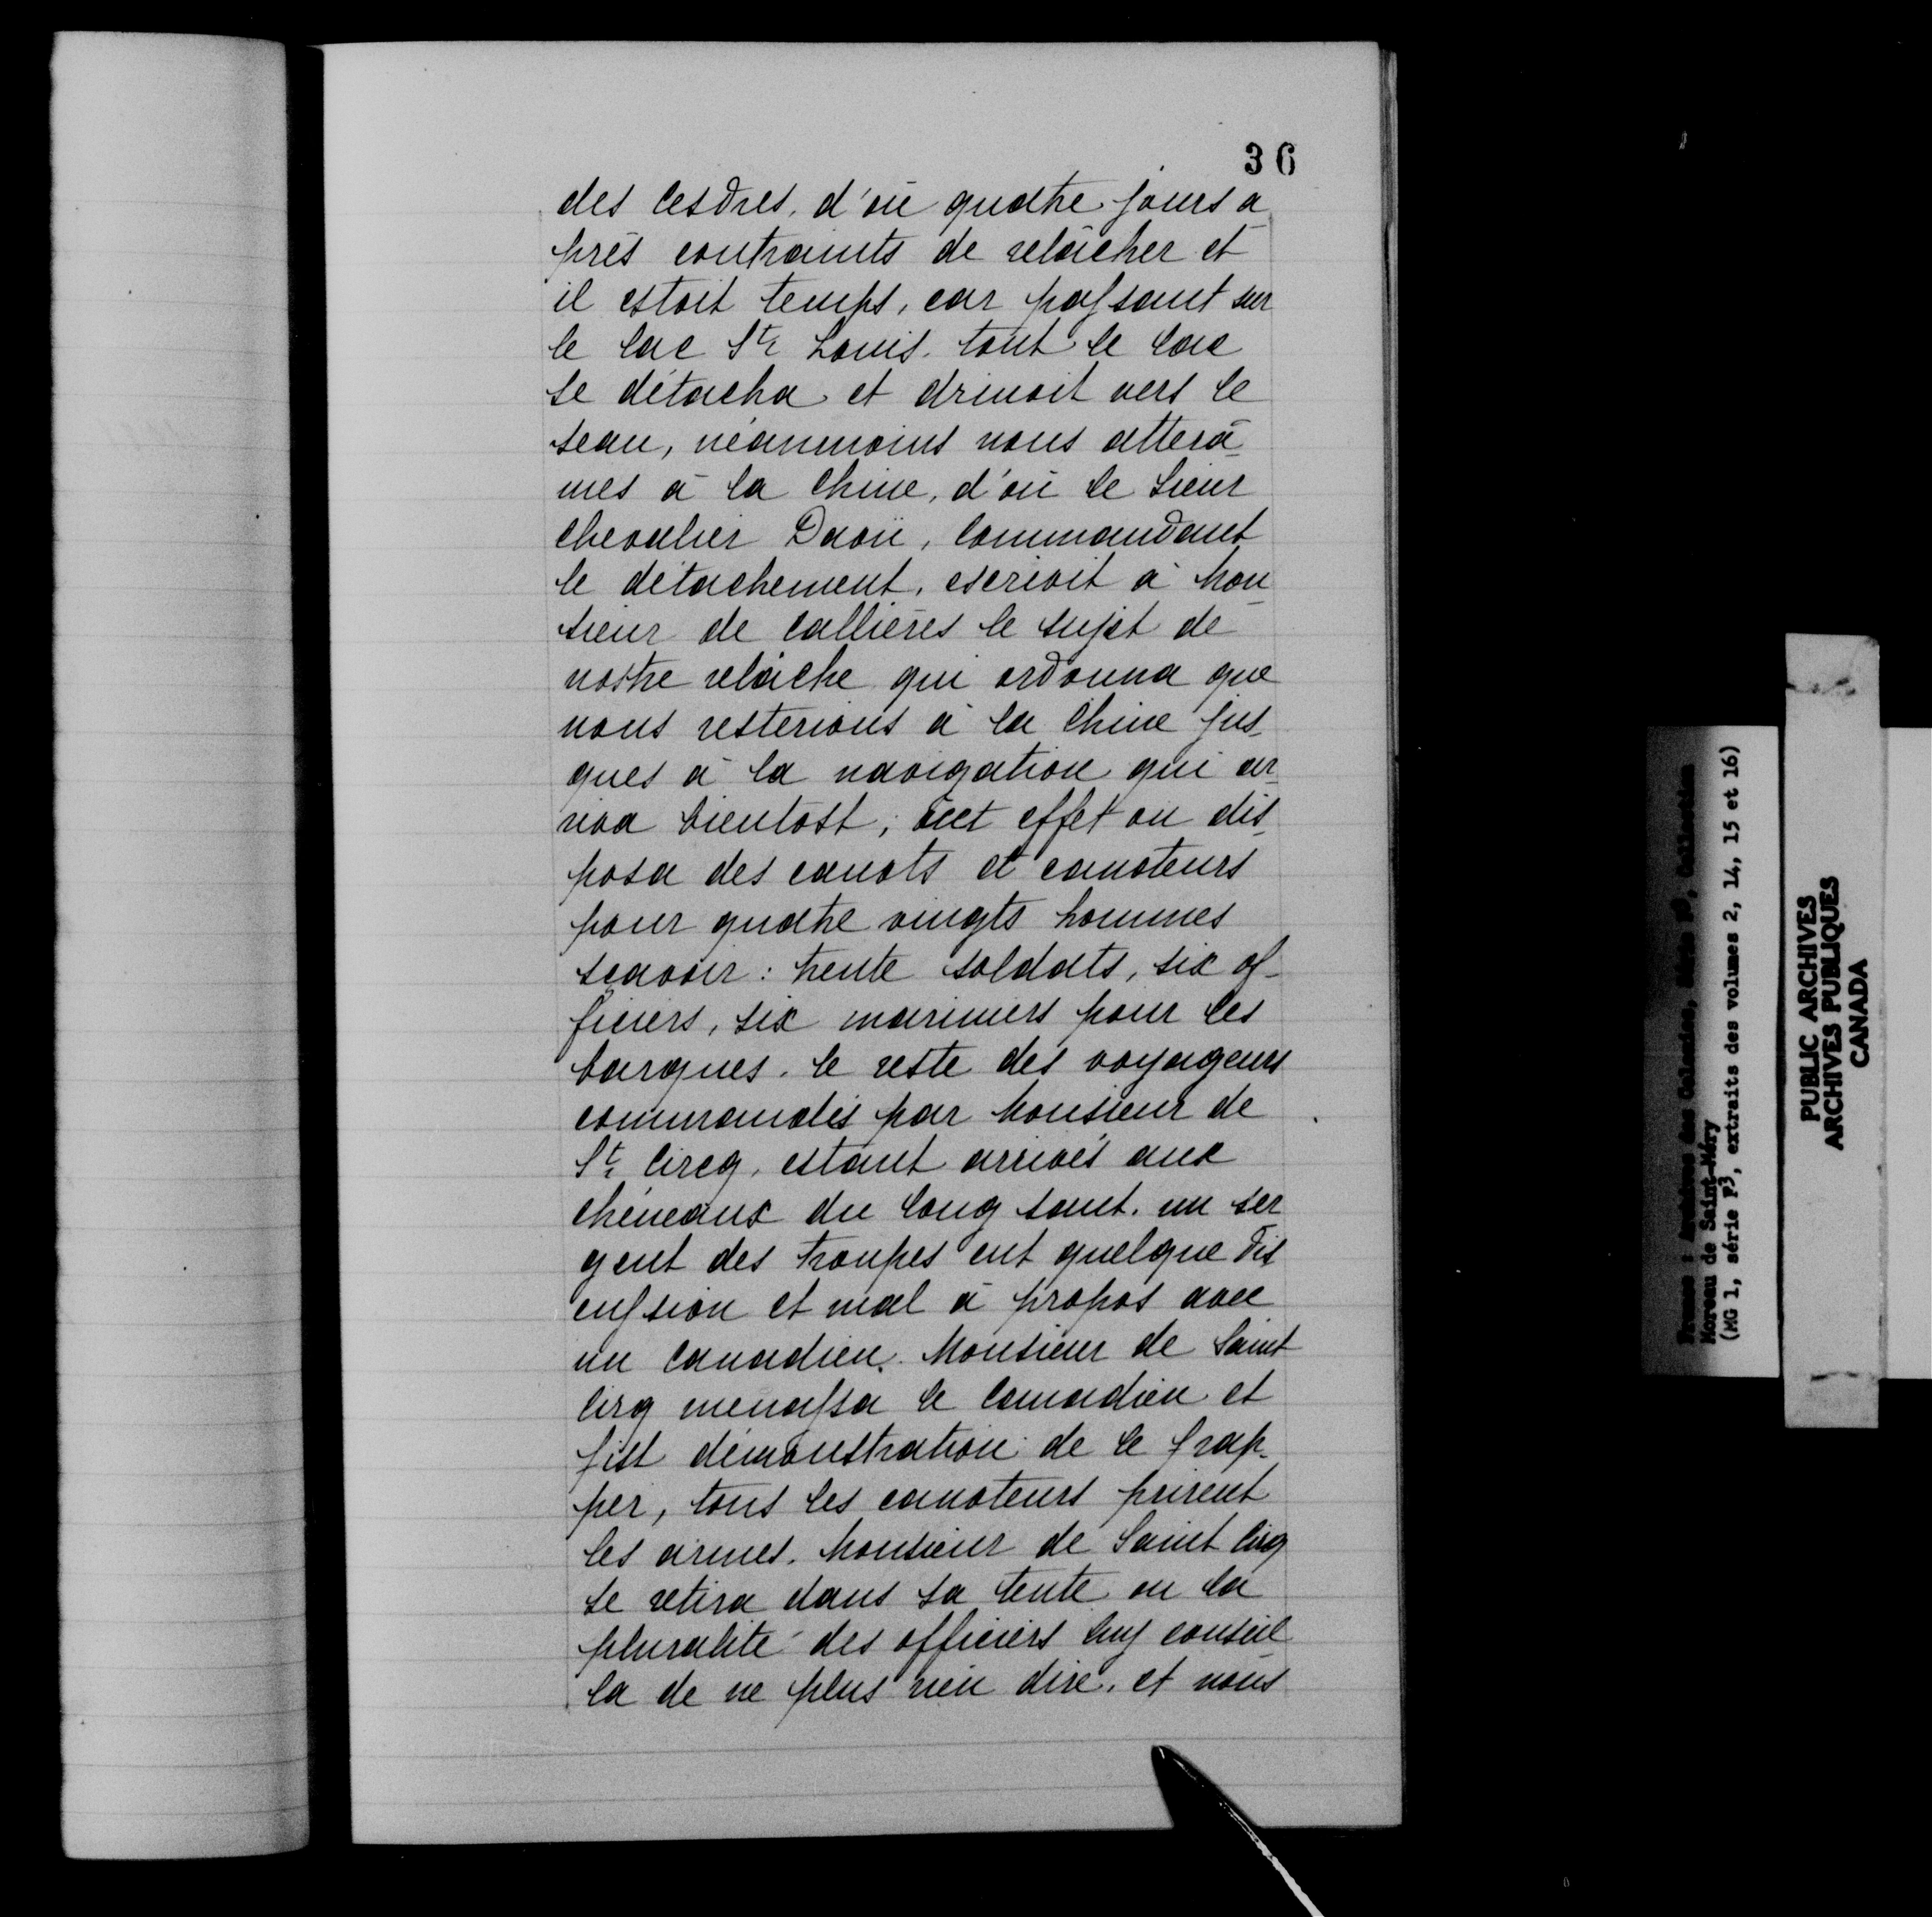 36
des Cesdres, d'où quatre jours a
près contraints de relâcher et
il estoit temps, car passant sur
le lac St Louis, tout le lac
se détacha et drivoit vers le
seau, néanmoins nous atterâ-
mes à la Chine, d'où le Sieur
Chevalier Daoü, Commandant
le détachement, escrivit à Mon-
sieur de Callières le sujet de
nostre relâche qui ordonna que
nous resterions à la Chine jus-
ques à la navigation qui ar-
riva bientost; à cet effet on dis-
posa des canots et canoteurs
pour quatre vingts hommes
scavoir: trente soldats, six of-
ficiers, six mariniers pour les
barques, le reste des voyageurs
commandés par Monsieur de
St Circq, estant arrivés aux
chéneaux du long saut, un ser
gent des troupes eut quelque dis
cussion et mal à propos avec
un Canadien. Monsieur de Saint
Cirq menassa le Canadien et
fist démonstration de le frap-
per, tous les canoteurs prirent
les armes. Monsieur de Saint Cirq
se retira dans sa tente ou la
pluralité des officiers luy conseil-
la de ne plus rien dire, et nous
France : Archives des Colonies, Série F3, Collection
Moreau de Saint-Méry
(MG 1, série F3, extraits des volumes 2, 14, 14, 15 et 16)
PUBLIC ARCHIVES
ARCHIVES PUBLIQUES
CANADA